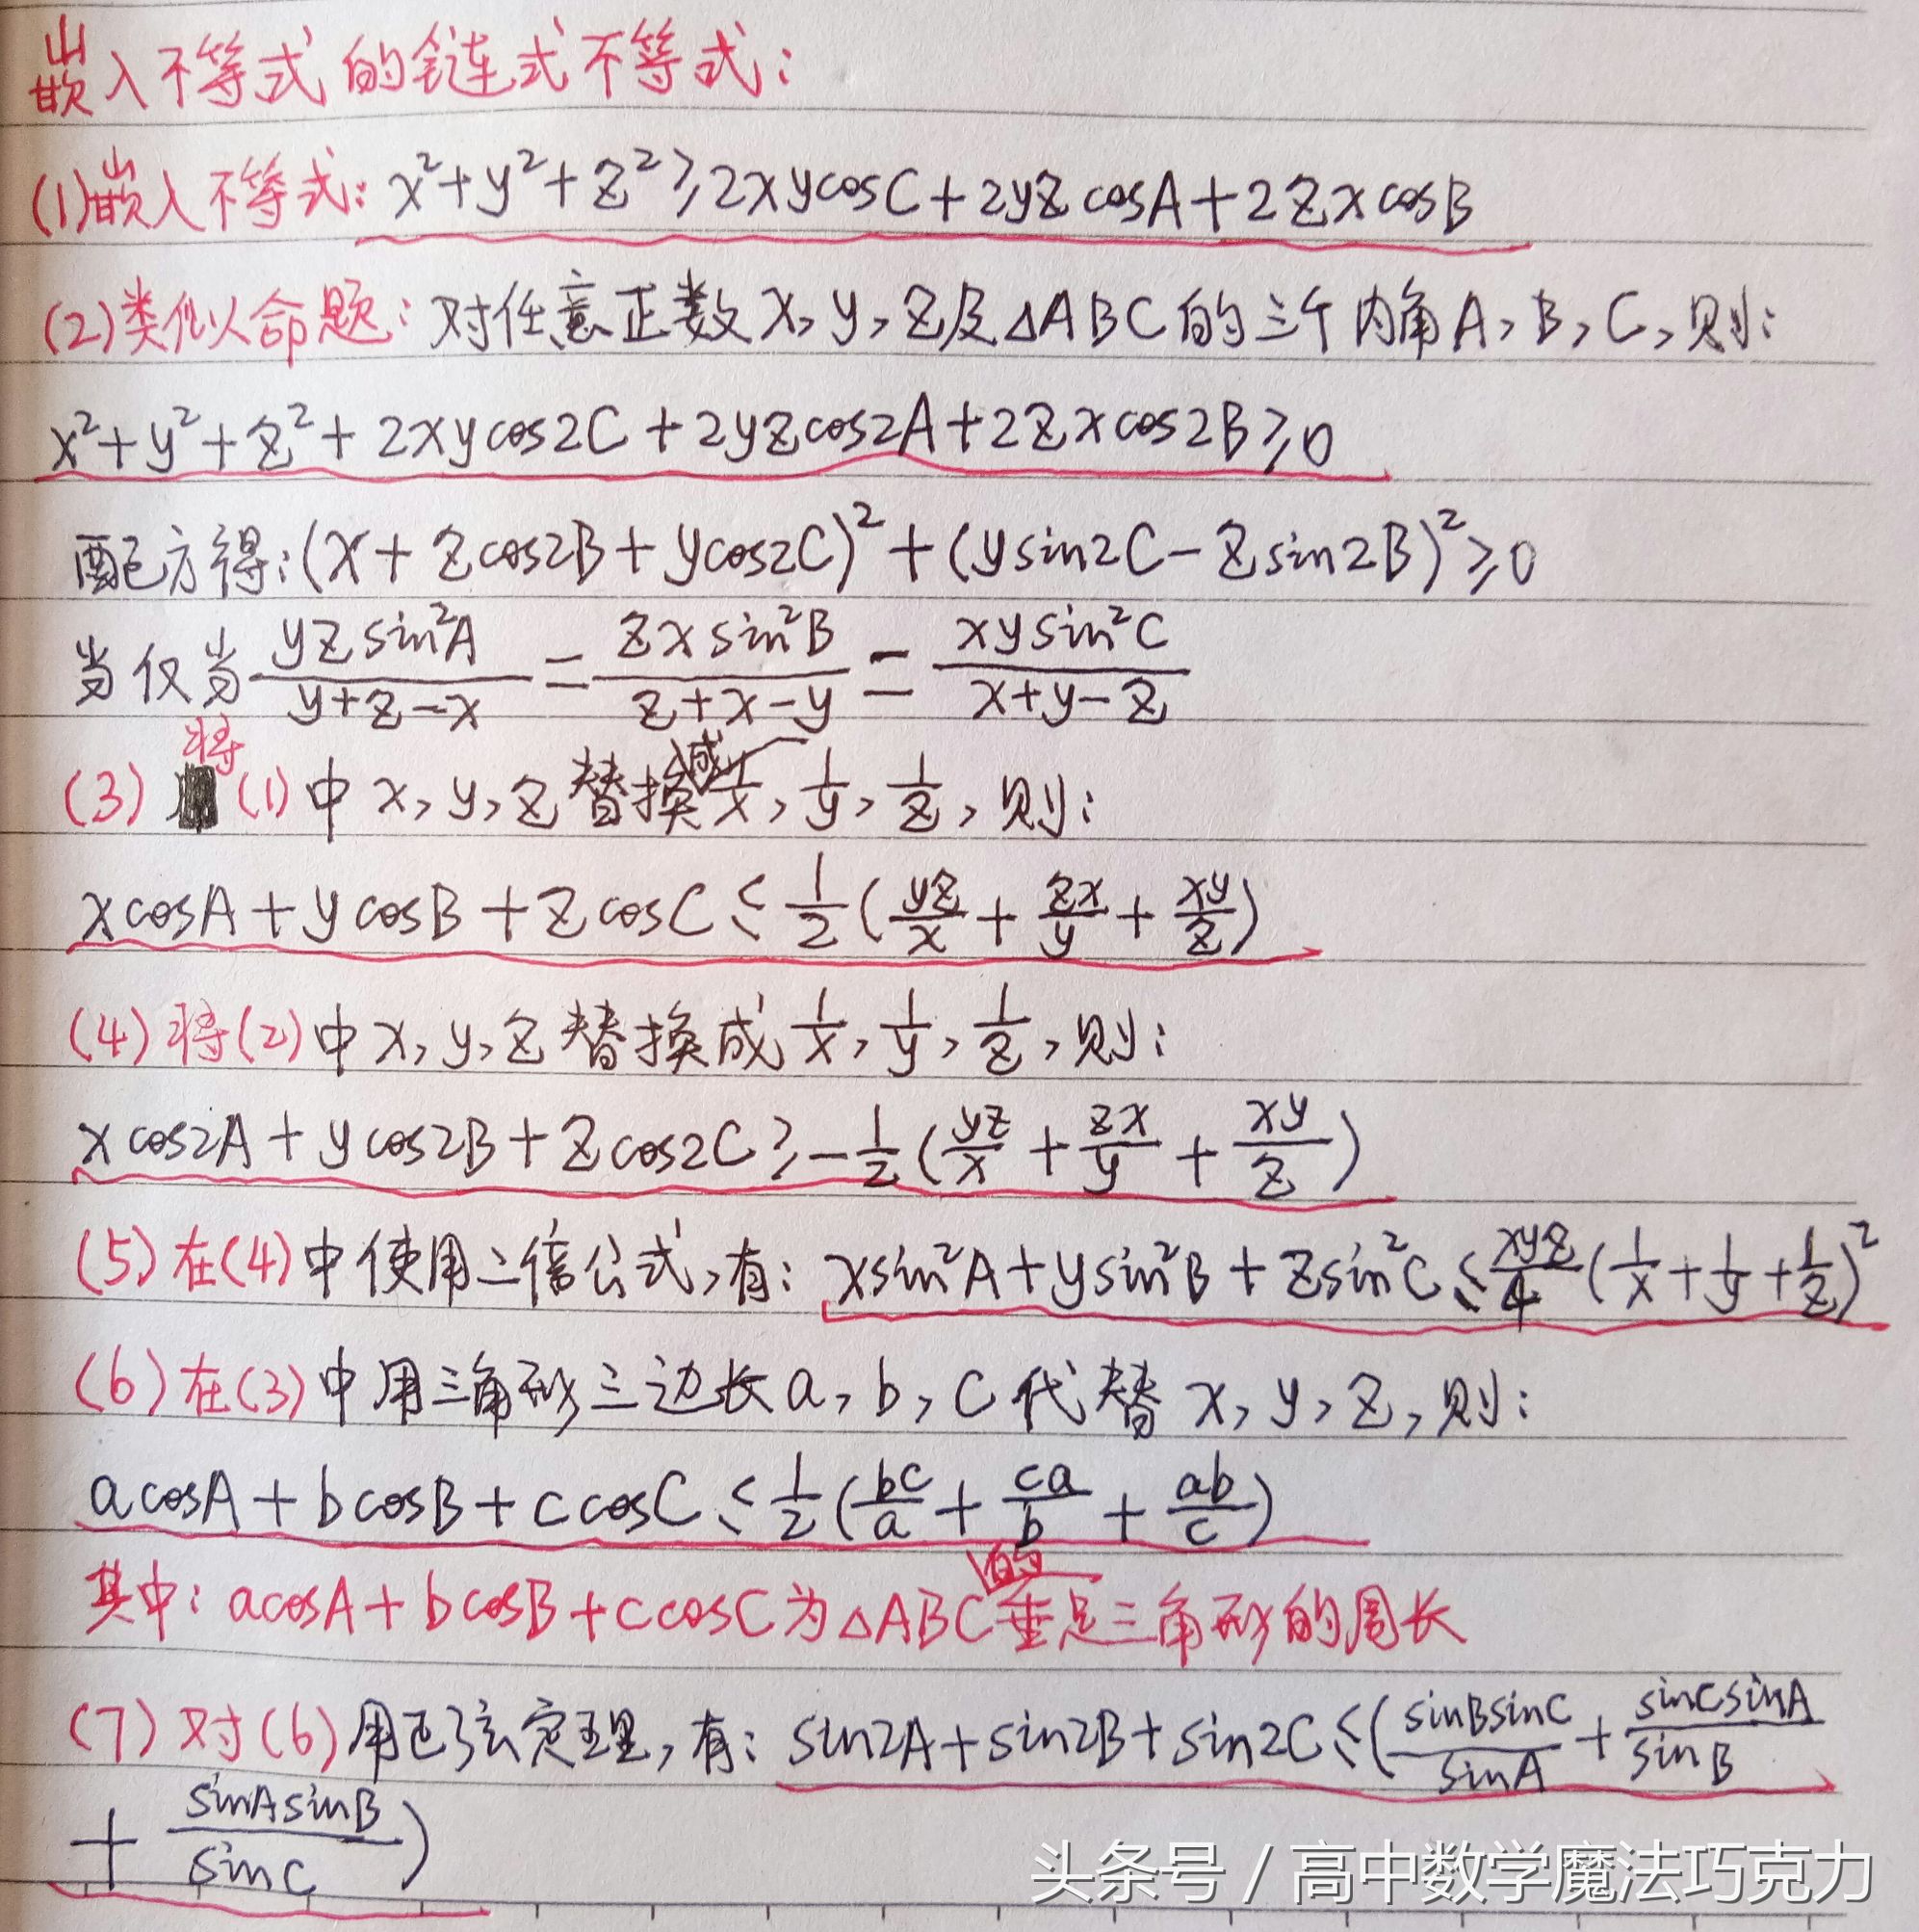 嵌入不等式的链式不等式:
(1)嵌入不等式: x²+y²+z²≥2xycosC+2yzcosA+2zxcosB
(2)类似命题: 对任意正数x, y, z及△ABC的三个内角A, B, C, 则:
x²+y²+z²+2xycos2C+2yzcos2A+2zxcos2B≥0
配方得: (x+zcos2B+ycos2C)²+(ysin2C-zsin2B)²≥0
当仅当 yzsin²A/(y+z-x) = zxsin²B/(z+x-y) = xysin²C/(x+y-z)
(3) 将(1)中x, y, z替换成1/x, 1/y, 1/z, 则:
xcosA+ycosB+zcosC≤1/2(yz/x+zx/y+xy/z)
(4)将(2)中x, y, z替换成1/x, 1/y, 1/z, 则:
xcos2A+ycos2B+zcos2C≥-1/2(yz/x+zx/y+xy/z)
(5)在(4)中使用二倍公式, 有: xsin²A+ysin²B+zsin²C≤xyz/4(1/x+1/y+1/z)²
(6)在(3)中用三角形三边长a, b, c代替x, y, z, 则:
acosA+bcosB+ccosC≤1/2(bc/a+ca/b+ab/c)
其中: acosA+bcosB+ccosC为△ABC的垂足三角形的周长
(7)对(6)用正弦定理, 有: sin2A+sin2B+sin2C≤(sinBsinC/sinA+sinCsinA/sinB
+sinAsinB/sinC)
头条号 / 高中数学魔法巧克力